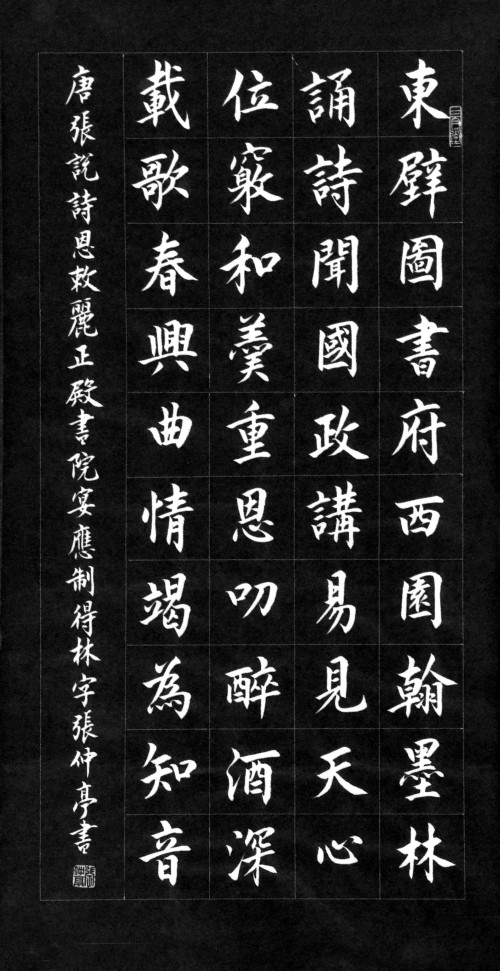 東壁圖書府西園翰墨林
誦詩聞國政講易見天心
位竅和羹重恩叨醉酒深
載歌春興曲情竭為知音
唐張説詩恩敕麗正殿書院宴應制得林字張仲亭書